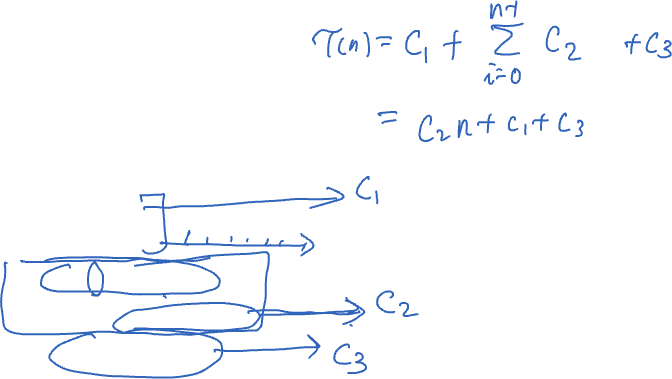 T(n) = C₁ + ∑ᵢ₌₀ⁿ⁻¹ C₂ + C₃
= C₂n + C₁ + C₃
C₁
C₂
C₃